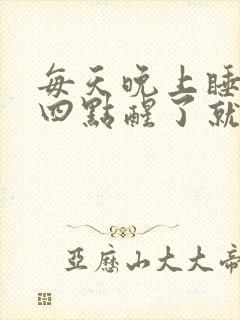 每天晚上睡
四點醒了就
亞歷山大大帝